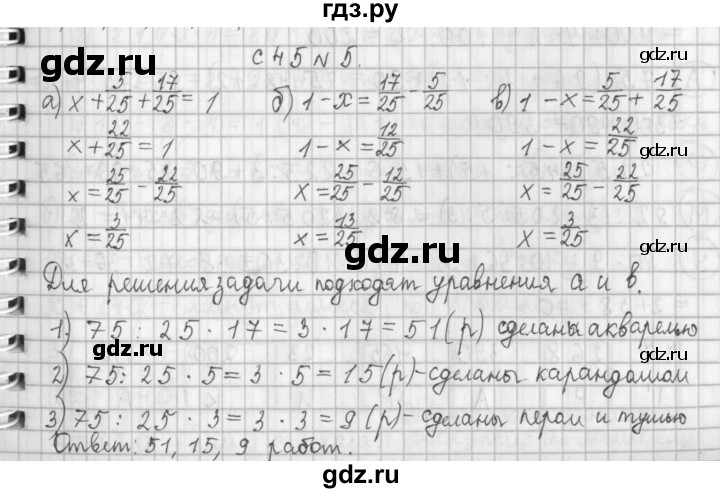 гдз.ру
gdz.ru gdz.ru
с 45 № 5.
а) x + 5/25 + 17/25 = 1   б) 1 - x = 17/25 - 5/25   в) 1 - x = 5/25 + 17/25
gdz.ru gdz.ru
x + 22/25 = 1   1 - x = 12/25   1 - x = 22/25
x = 25/25 - 22/25   x = 25/25 - 12/25   x = 25/25 - 22/25
x = 3/25   x = 13/25   x = 3/25
gdz.ru
Для решения задачи подходят уравнения а и в.
1) 75 : 25 · 17 = 3 · 17 = 51 (р) сделаны акварелью
gdz.ru gdz.ru
2) 75 : 25 · 5 = 3 · 5 = 15 (р) - сделаны карандашом
3) 75 : 25 · 3 = 3 · 3 = 9 (р) - сделаны пером и тушью
Ответ: 51, 15, 9 работ.
gdz.ru gdz.ru
gdz.ru